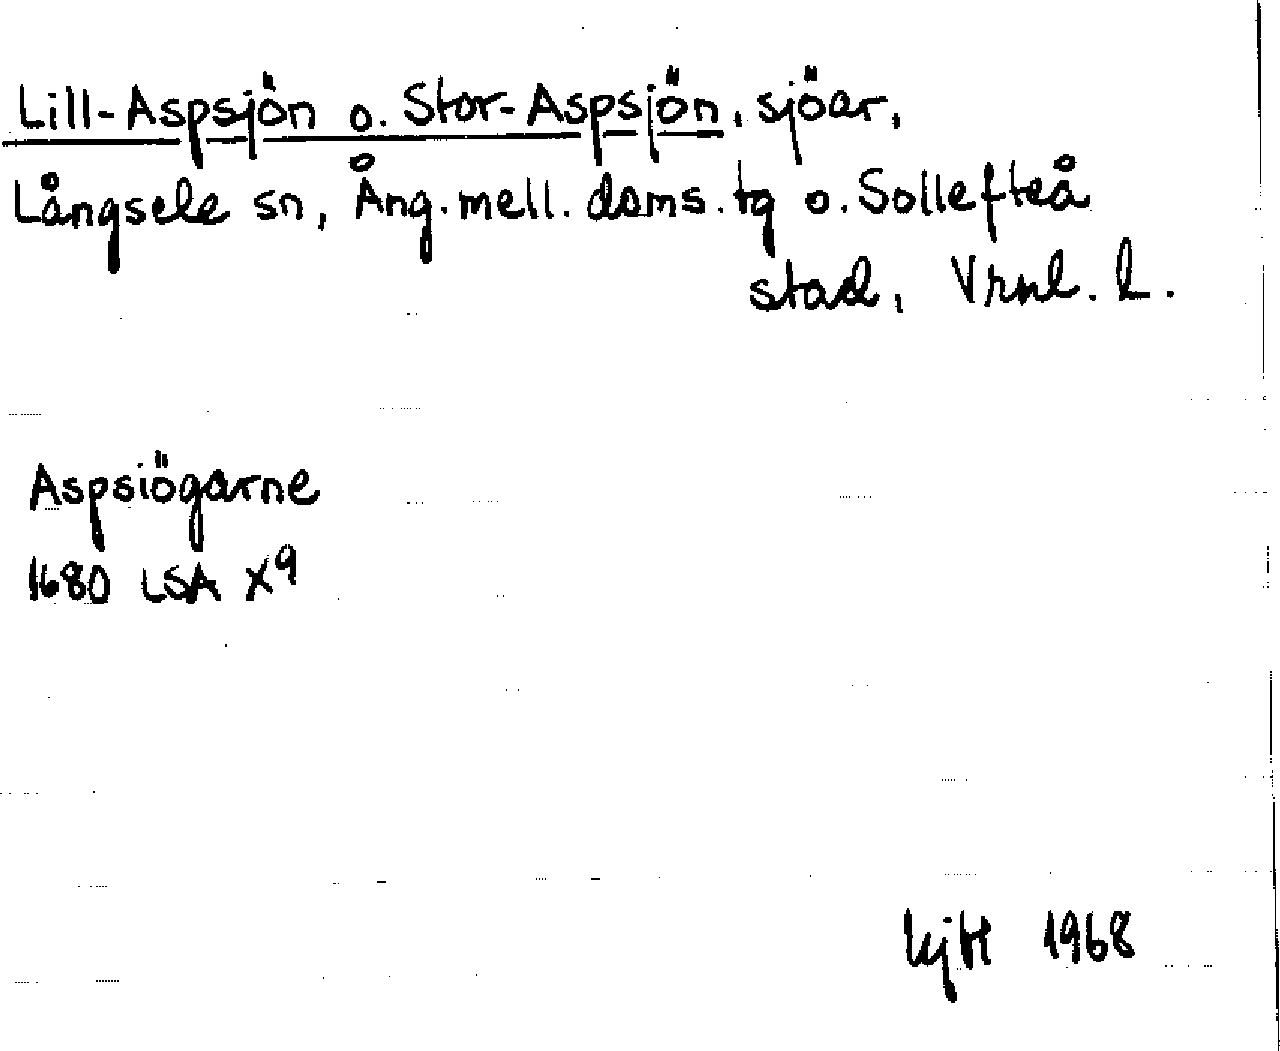 Lill-Aspsjön o. Stor-Aspsjön, sjöar,
Långsele sn, Ång. mell. doms. tg o. Sollefteå
stad, Vrnl. l.
Aspsiögarne
1680 LSA X9
1968